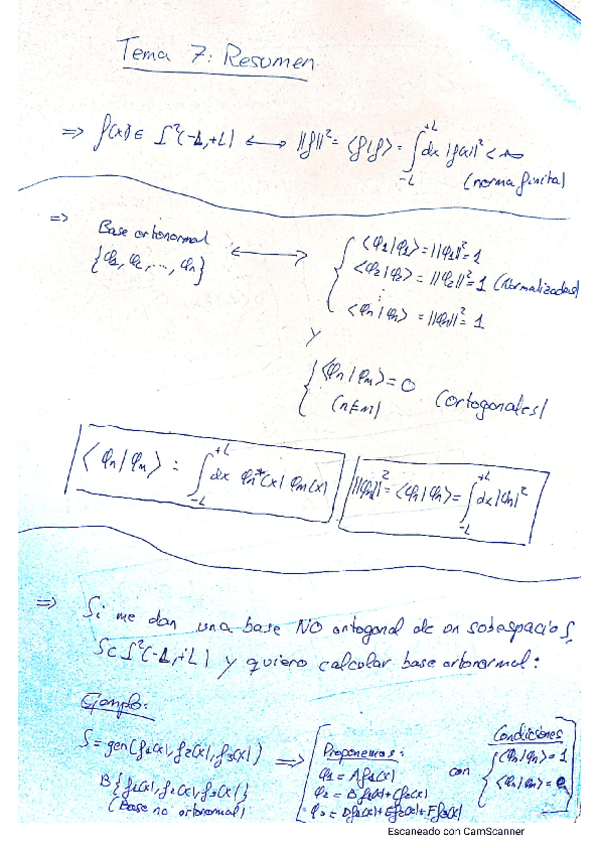 Tema 7: Resumen
⇒ f(x) ∈ L²(-L,+L) ⟷ ||f||² = ⟨f|f⟩ = ∫_{-L}^{+L} dx |f(x)|² < ∞
(norma finita)
⇒ Base ortonormal
{φ1, φ2, ..., φn}
⟷
⟨φ1|φ1⟩ = ||φ1||² = 1
⟨φ2|φ2⟩ = ||φ2||² = 1 (Normalizadas)
⋮
⟨φn|φn⟩ = ||φn||² = 1
y
⟨φn|φm⟩ = 0
(n≠m)
(ortogonales)
⟨φn|φm⟩ = ∫_{-L}^{+L} dx φn*(x) φm(x)
||φn||² = ⟨φn|φn⟩ = ∫_{-L}^{+L} dx |φn|²
⇒ Si me dan una base NO ortogonal de un subespacio S,
S⊂ L²(-L,+L) y quiero calcular base ortonormal:
Ejemplo:
S = gen(f1(x), f2(x), f3(x)) ⇒
B{f1(x), f2(x), f3(x)}
(Base no ortonormal)
Proponemos:
φ1 = Af1(x)
φ2 = Bf1(x) + Cf2(x)
φ3 = Df1(x) + Ef2(x) + Ff3(x)
con
Condiciones
⟨φn|φn⟩ = 1
⟨φn|φm⟩ = 0
Escaneado con CamScanner